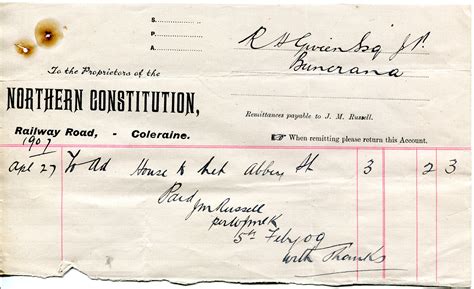 S
P
A
R H Gwien Esq J.P.
Buncrana
To the Proprietors of the
NORTHERN CONSTITUTION,
Remittances payable to J. M. Russell.
Railway Road, - Coleraine.
☛ When remitting please return this Account.
1907
Apl 27 To Ad House to Let Abbey St 3 2 3
Paid
JM Russell
5th Feby 09
With Thanks